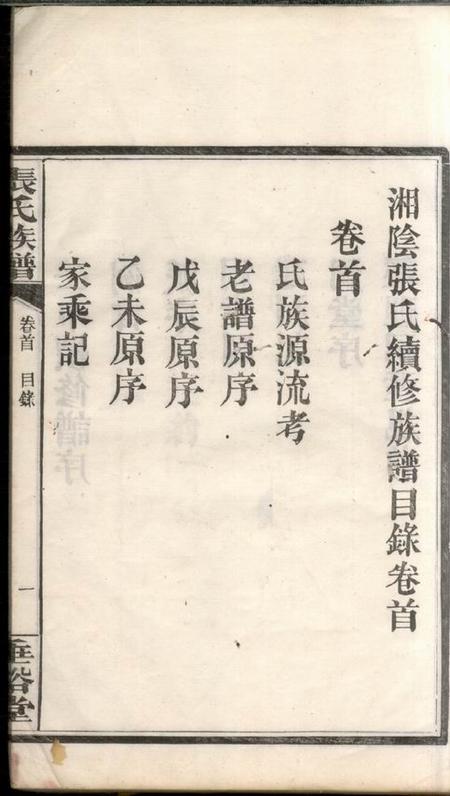 湘陰張氏續修族譜目錄卷首
卷首
氏族源流考
老譜原序
戊辰原序
乙未原序
家乘記
張氏族譜
卷首 目錄
一
垂裕堂